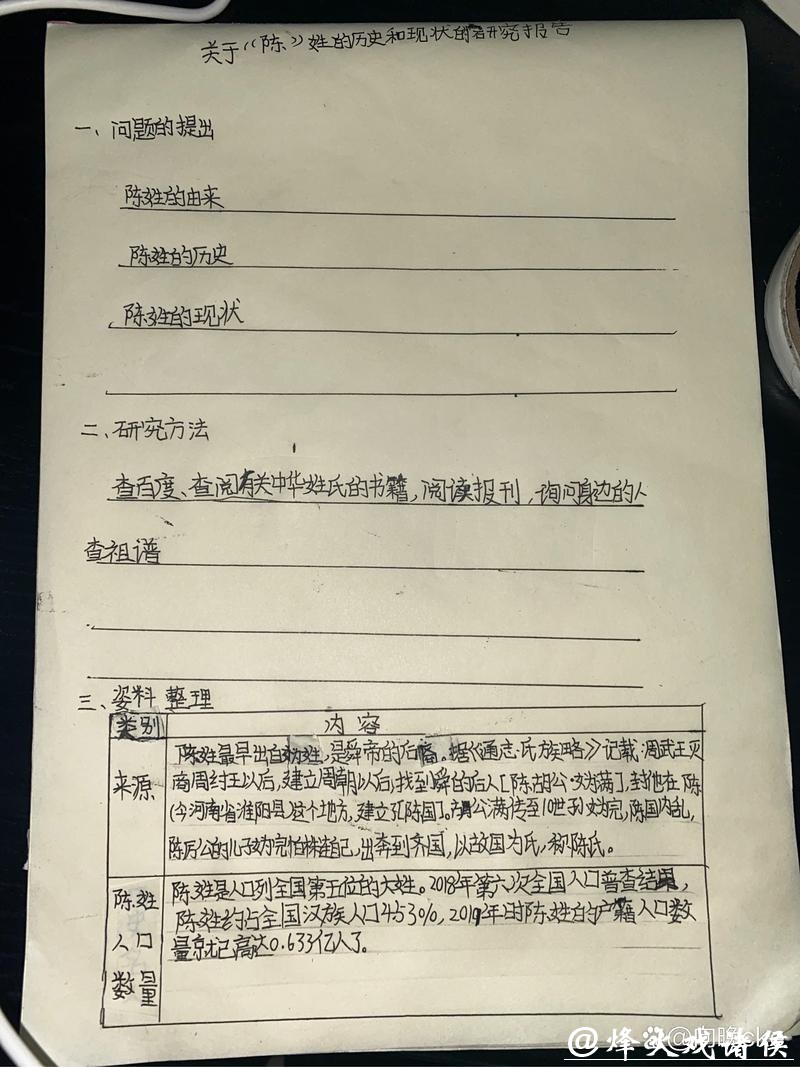 关于《陈》姓的历史和现状的研究报告
一、问题的提出
陈姓的由来
陈姓的历史
陈姓的现状
二、研究方法
查百度、查阅有关中华姓氏的书籍,阅读报刊,询问身边的人
查祖谱
三、姿料整理
类别 内容
来源
陈姓最早出自妫姓,是舜帝的后裔。据《通志·氏族略》记载:周武王灭
商周纣王以后,建立周朝以后,找到舜的后人[陈胡公·妫满],封他在陈
(今河南省淮阳县)这个地方,建立了[陈国]。胡公满传至10世孙妫完,陈国内乱,
陈厉公的儿子妫完怕株连自己,出奔到齐国,以故国为氏,称陈氏。
陈姓
人口
数量
陈姓是人口列全国第五位的大姓。2018年第六次全国人口普查结果,
陈姓约占全国汉族人口4.53%,2019年时陈姓的户籍人口数
量就已高达0.633亿人了。
@烽火戏诸侯